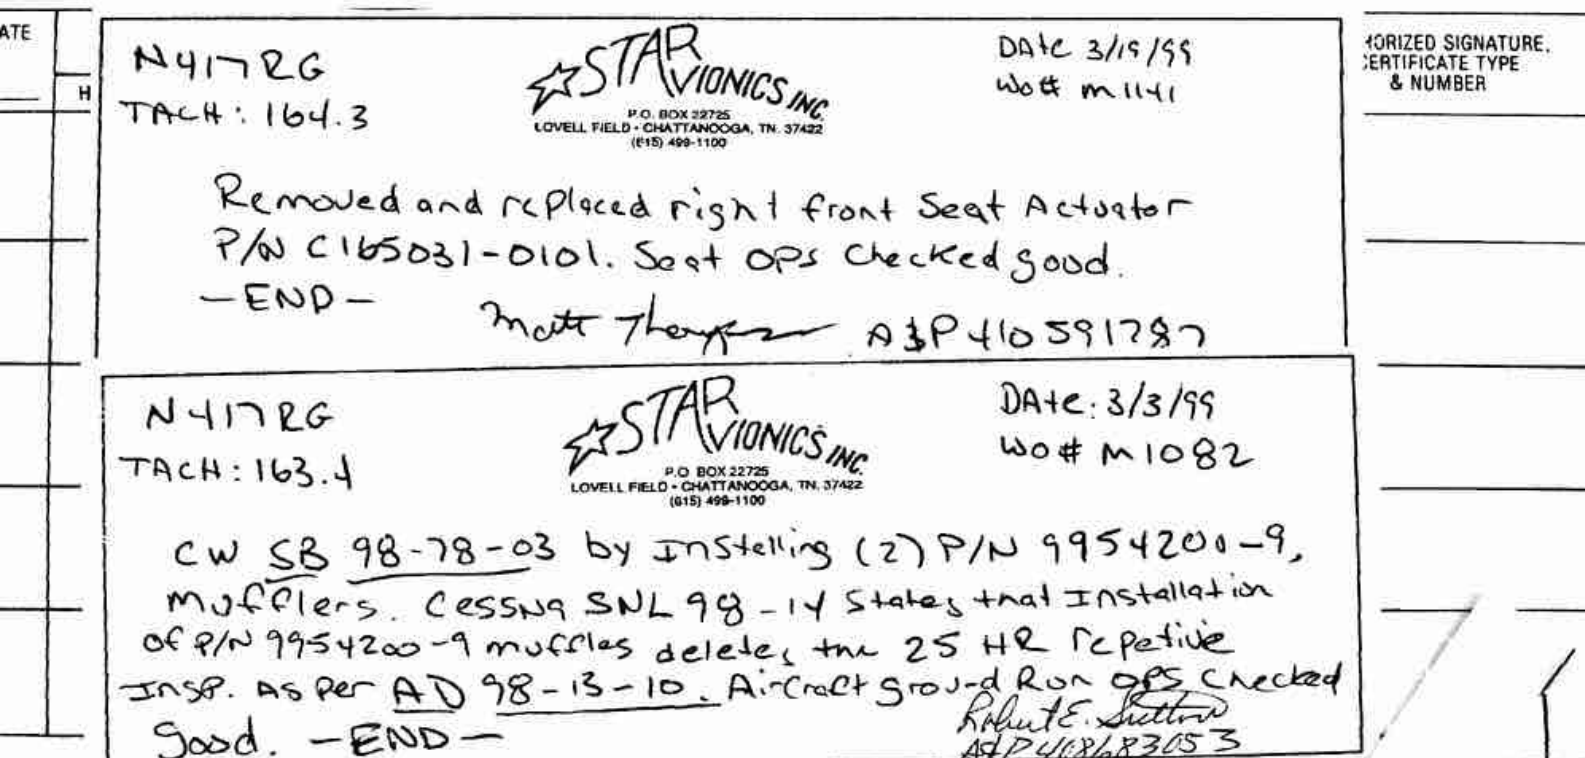 ATE
H
HORIZED SIGNATURE,
CERTIFICATE TYPE
& NUMBER
N417RG
TACH: 164.3
STAR
AVIONICS INC.
P.O. BOX 22725
LOVELL FIELD • CHATTANOOGA, TN. 37422
(615) 499-1100
DAtE 3/19/99
WO# M1141
Removed and replaced right front Seat Actuator
P/N C165031-0101. Seat OPS Checked good.
-END-
Matt A&P 410591787
N417RG
TACH: 163.4
STAR
AVIONICS INC.
P.O. BOX 22725
LOVELL FIELD • CHATTANOOGA, TN. 37422
(615) 499-1100
DAtE: 3/3/99
WO# M1082
CW SB 98-78-03 by Instelling (2) P/N 9954200-9,
mufflers. Cessna SNL 98-14 States that Installation
of P/N 9954200-9 muffles deletes the 25 HR repetive
Insp. As per AD 98-13-10. Aircraft ground Run OPS Checked
good. -END-
Robert E. Sutton
A&P 408683053